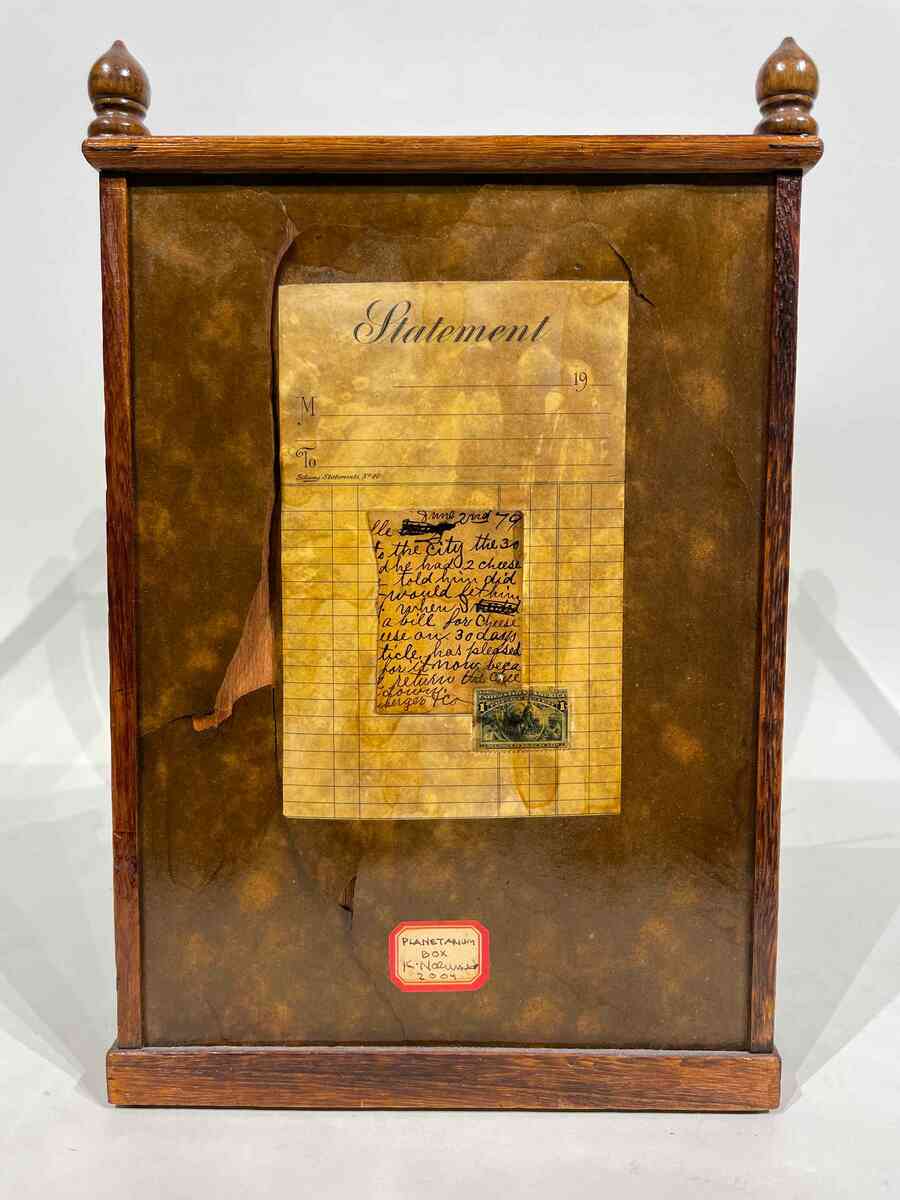 Statement
19
M
To
Statements, Nº 40
June 2nd 79
to the City the 30
he had 2 cheese
told him did
would let him
when I
a bill for Cheese
on 30 days
ticle has pleased
for it now beca
return the
1 1
PLANETARIUM
BOX
2004